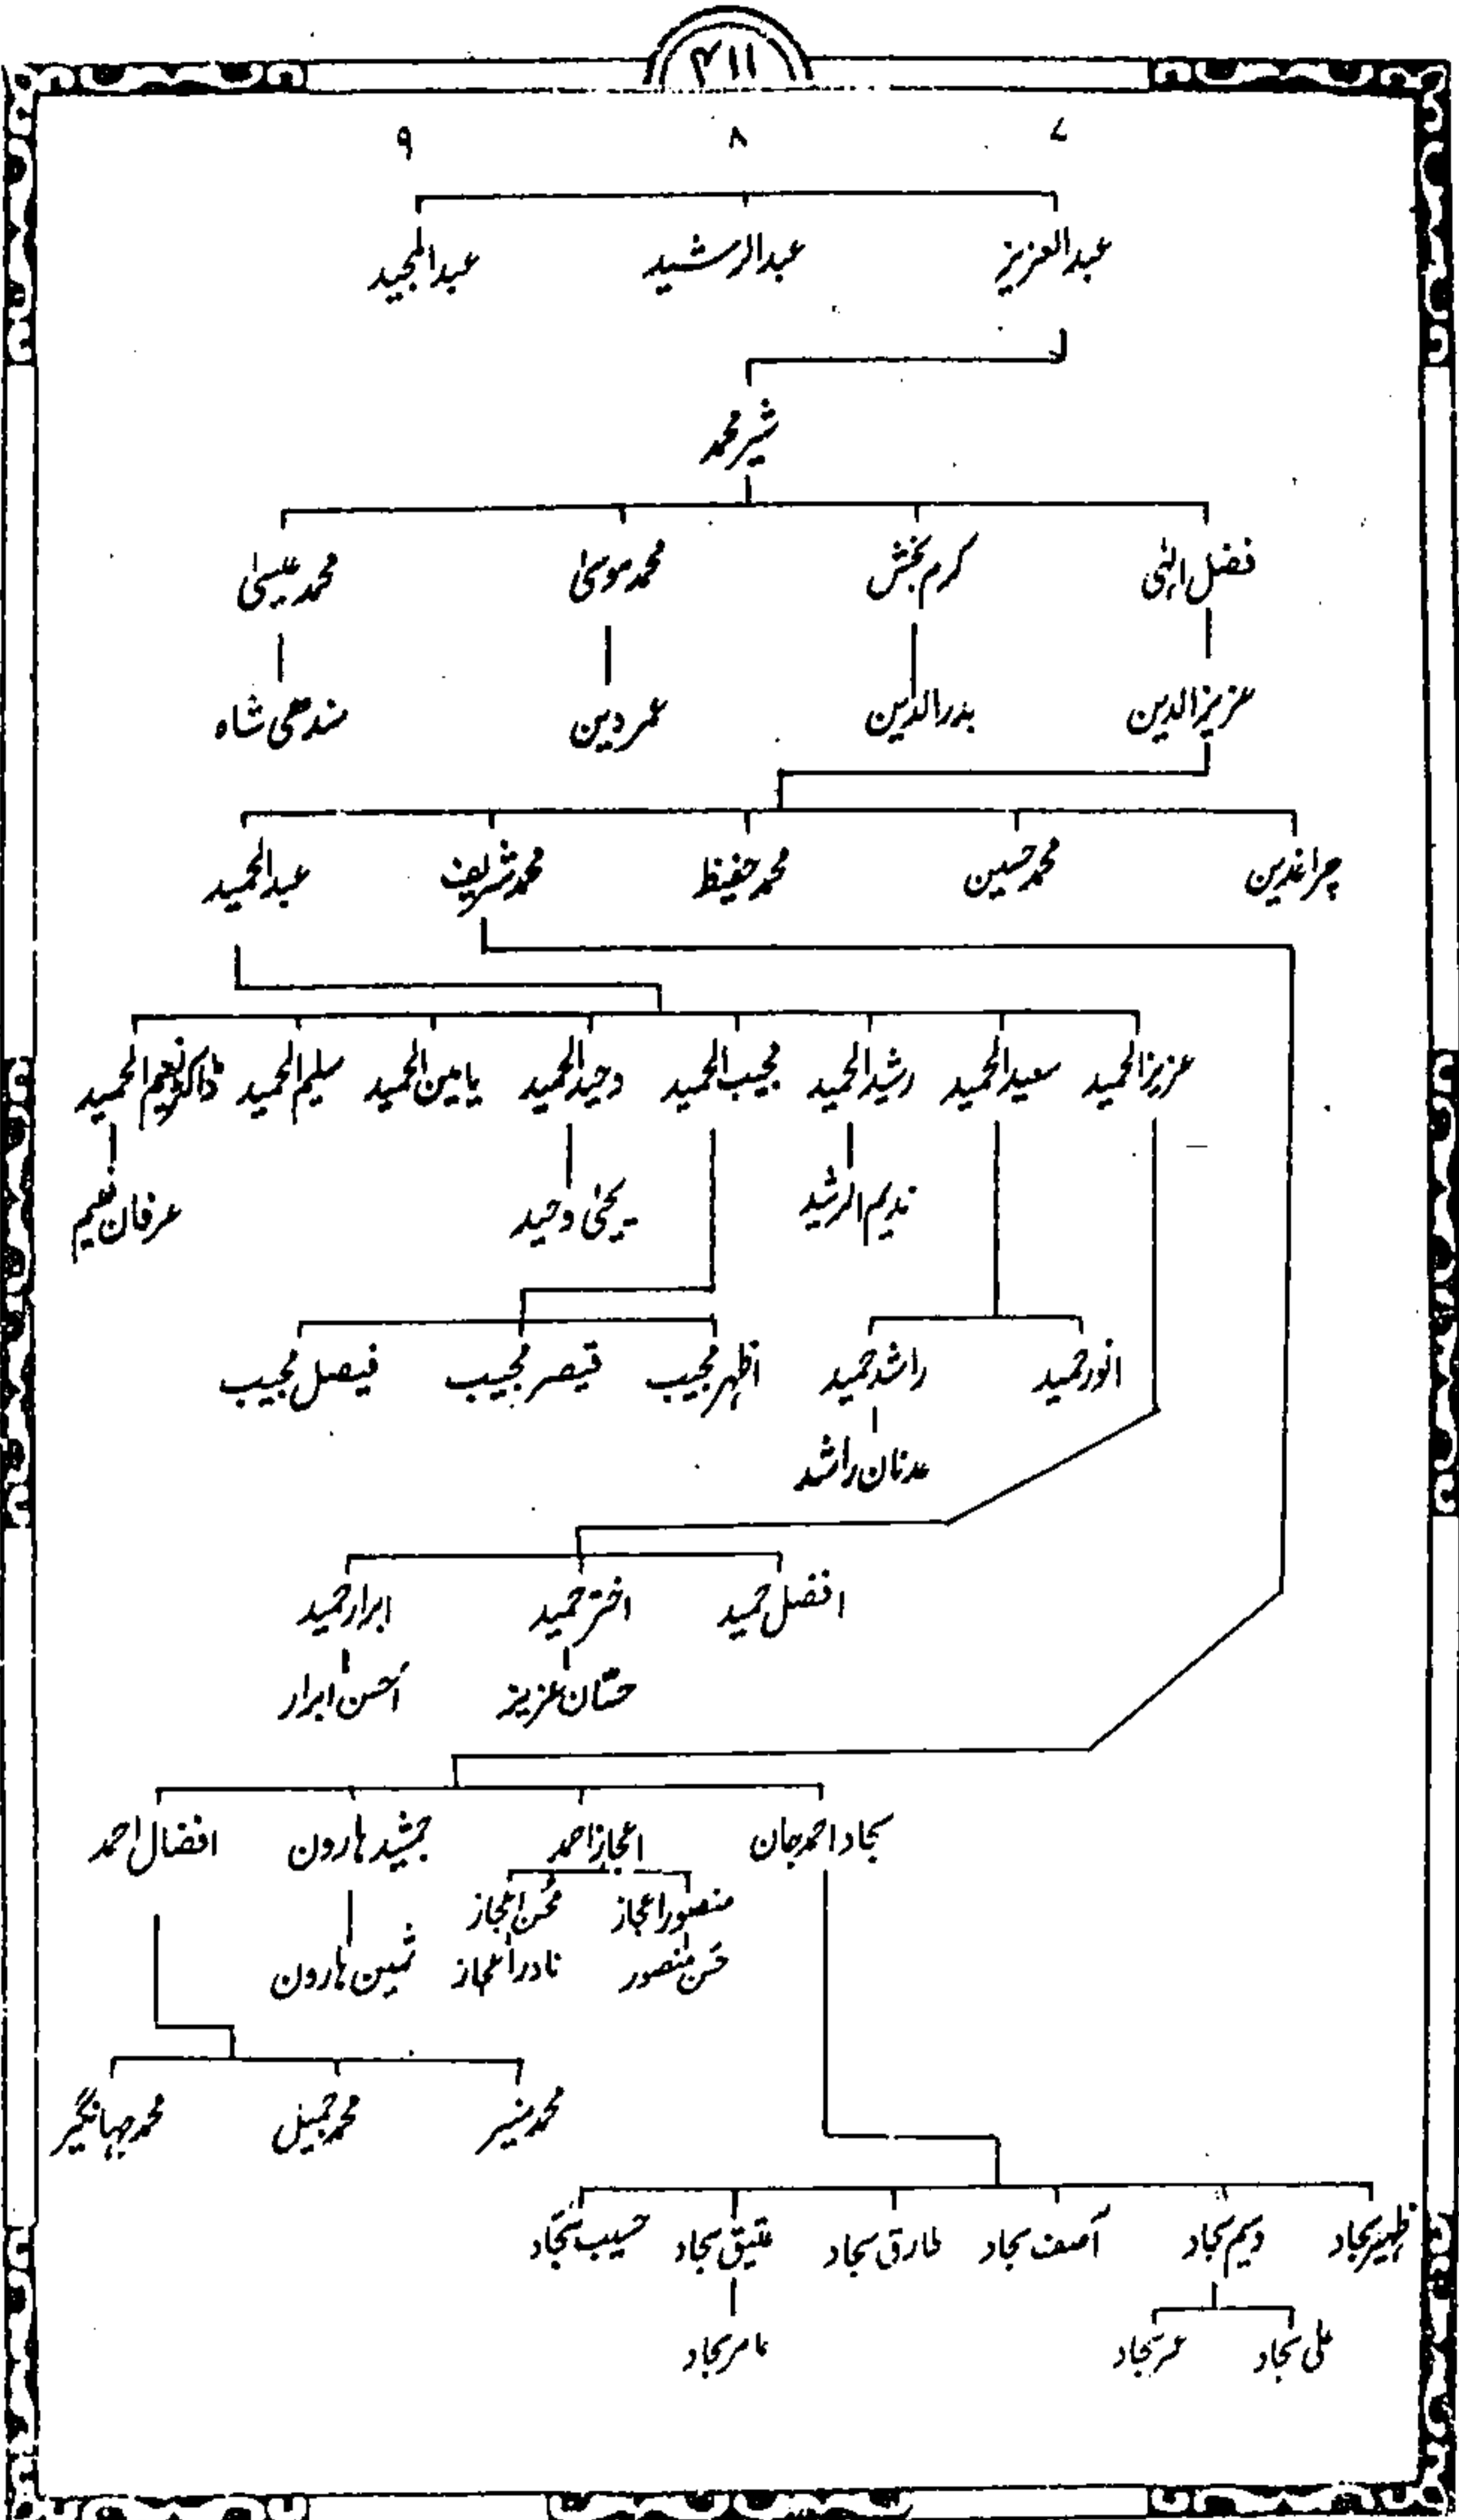 ۳۱۱
۷ ۸ ۹
عبدالعزیز عبدالرشید عبدالمجید
شیر محمد
فضل الٰہی کرم بخش محمد موسیٰ محمد عیسیٰ
عزیز الدین بدر الدین عمر دین سندھی شاہ
چراغدین محمد حسین محمد حفیظ محمد شریف عبدالحمید
عزیز الحمید سعید الحمید رشید الحمید مجیب الحمید وحید الحمید یامین الحمید سلیم الحمید ڈاکٹر نعیم الحمید
ندیم الرشید یحییٰ وحید عرفان نعیم
انور حمید راشد حمید اظہر مجیب قیصر مجیب فیصل مجیب
عدنان راشد
افضل حمید اختر حمید ابرار حمید
حسّان عزیز احسن ابرار
سجاد احمد جان اعجاز احمد جمشید ہارون افضال احمد
منصور اعجاز محسن اعجاز
حسن منصور نادر اعجاز ثمین ہارون
محمد منیر محمد جمیل محمد جہانگیر
ظہیر سجاد وسیم سجاد آصف سجاد طارق سجاد عتیق سجاد حسیب سجّاد
علی سجاد عمر سجاد سجاد